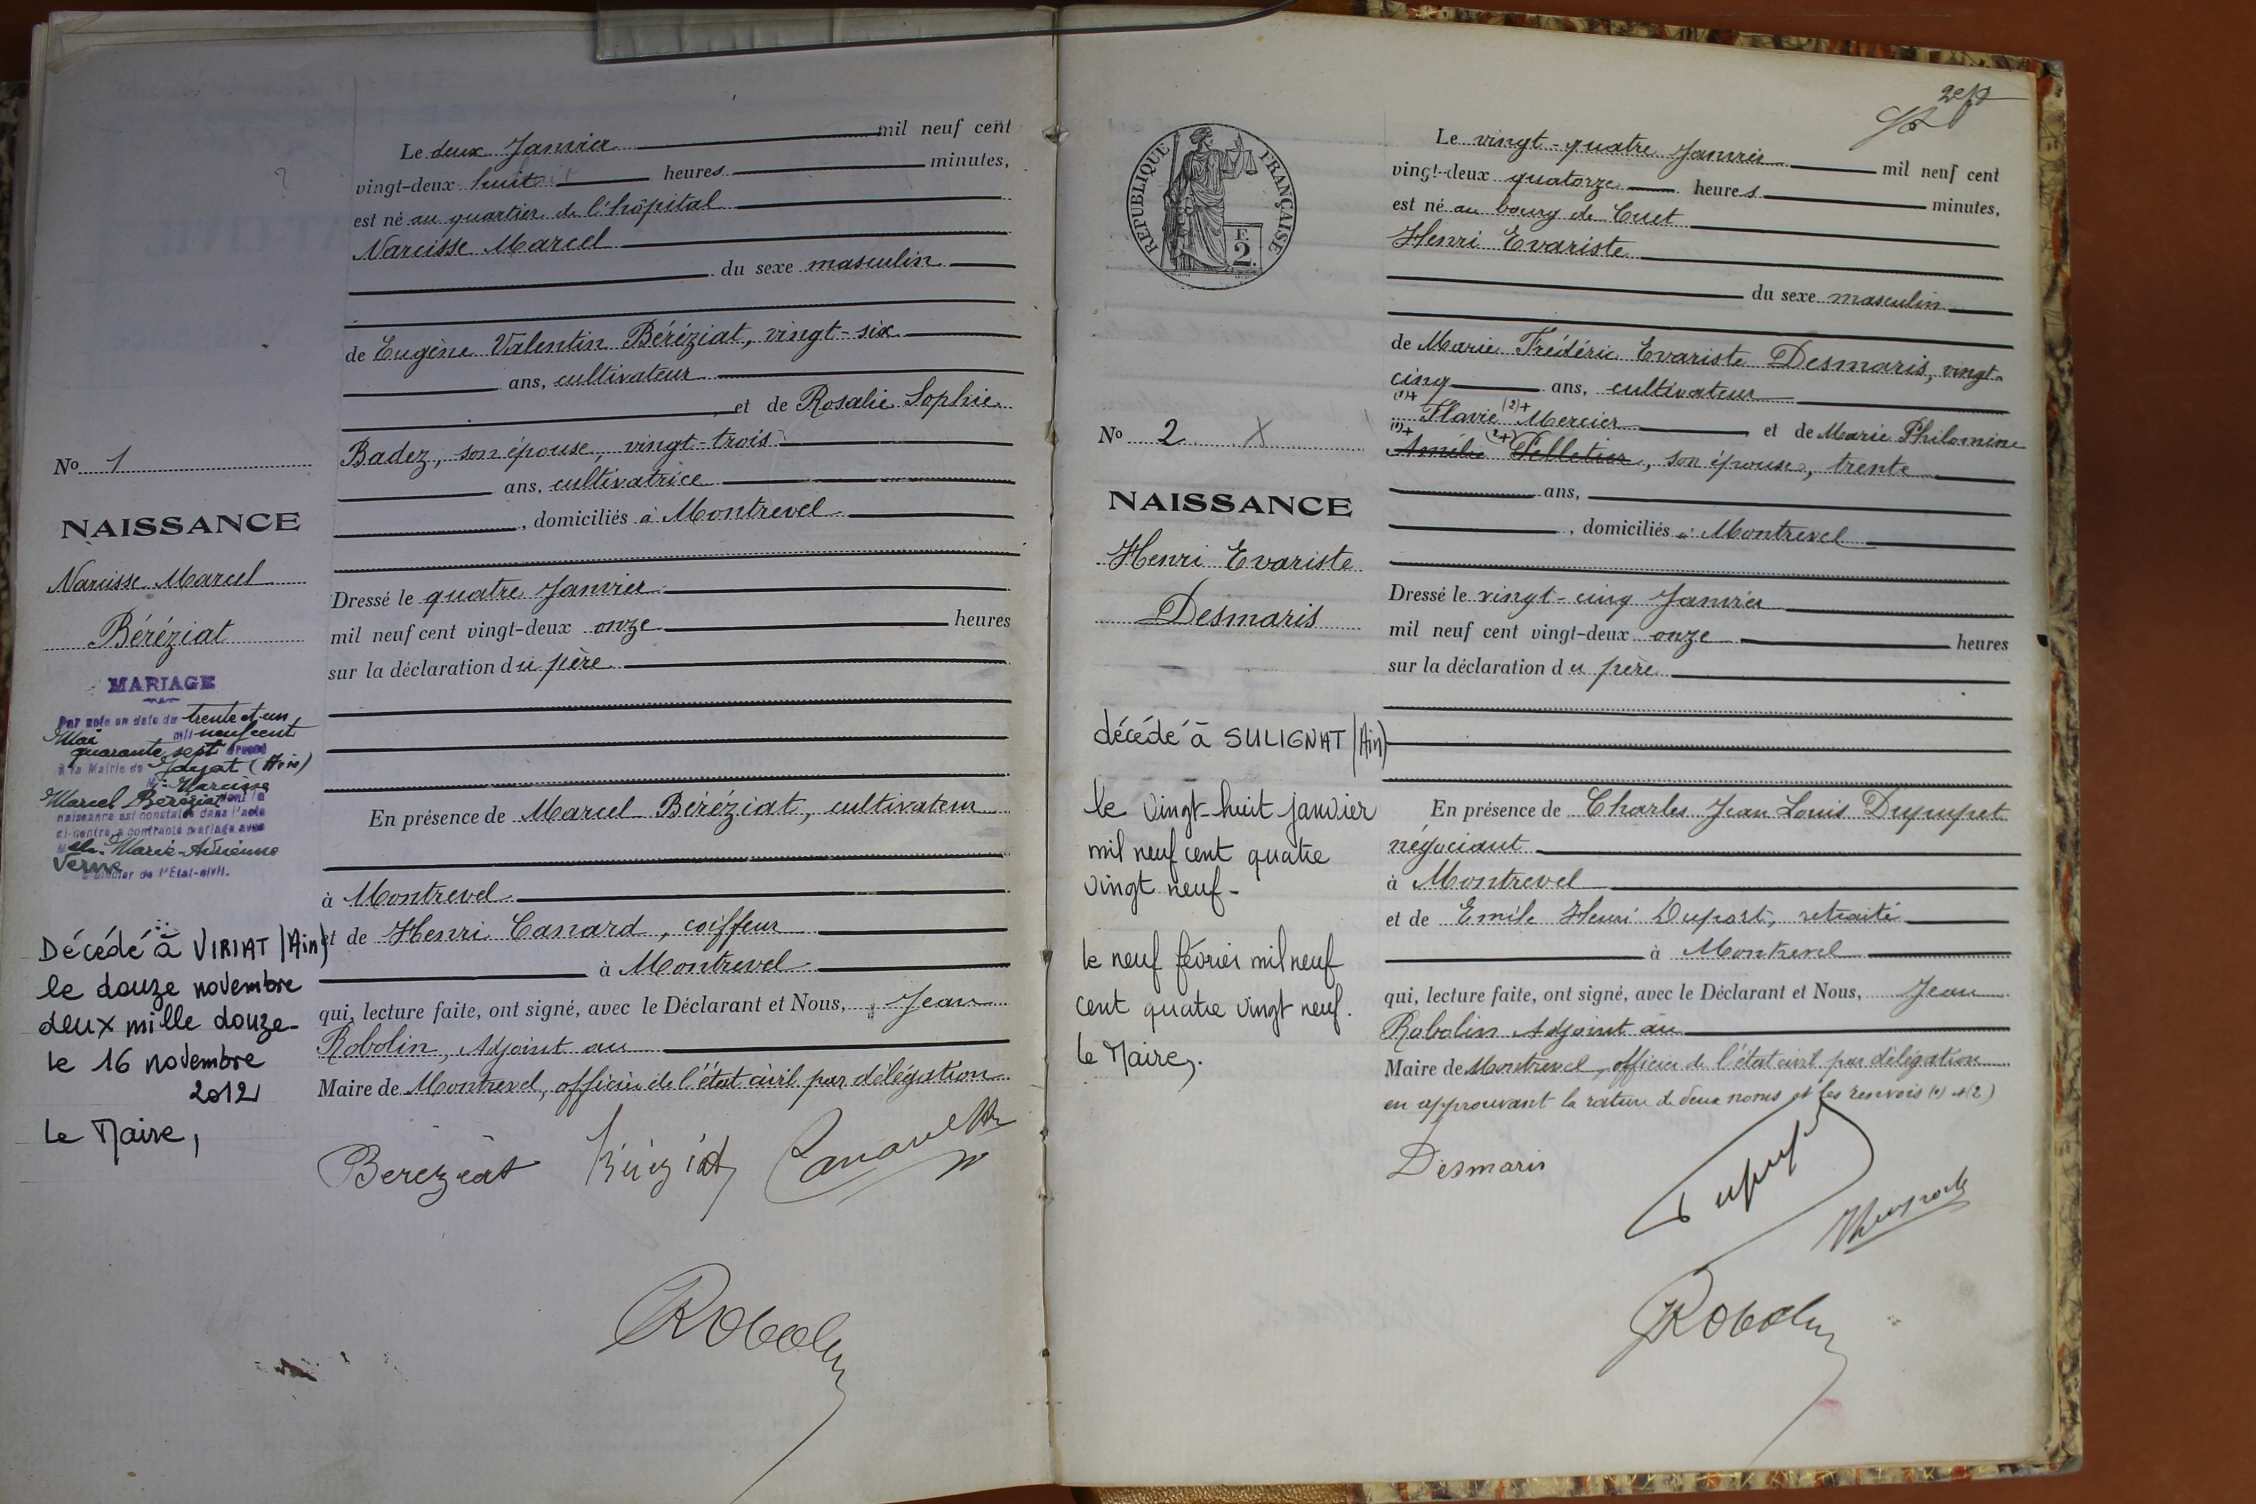 Le deux Janvier mil neuf cent
vingt-deux huit heures minutes,
est né au quartier de l'hôpital
Narcisse Marcel
du sexe masculin
de Eugène Valentin Béréziat, vingt-six
ans, cultivateur
et de Rosalie Sophie
Badez, son épouse, vingt-trois
ans, cultivatrice
, domiciliés à Montrevel
Dressé le quatre Janvier
mil neuf cent vingt-deux onze heures
sur la déclaration du père
En présence de Marcel Béréziat, cultivateur
à Montrevel
et de Henri Canard, coiffeur
à Montrevel
qui, lecture faite, ont signé, avec le Déclarant et Nous, Jean
Robolin, Adjoint au
Maire de Montrevel, officier de l'état civil par délégation
Béréziat Béréziat
Robolin
No 1
NAISSANCE
Narcisse Marcel
Béréziat
MARIAGE
Par acte en date du trente et un
Mai mil neuf cent
quarante sept
à la Mairie de Jayat (Ain)
M. Narcisse
Marcel Béréziat dont la
naissance est constatée dans l'acte
ci-contre a contracté mariage avec
Melle Marie-Adrienne
Verne
L'Officier de l'Etat-civil.
Décédé à VIRIAT (Ain)
le douze novembre
deux mille douze-
le 16 novembre
2012
Le Maire,
RÉPUBLIQUE FRANÇAISE
F.
2.
Le vingt-quatre Janvier mil neuf cent
vingt-deux quatorze heures minutes,
est né au bourg de Cuet
Henri Evariste
du sexe masculin
de Marie Frédéric Evariste Desmaris, vingt-
cinq ans, cultivateur
(1)+ Flavie (2)+ Mercier et de Marie Philomine
(1)+ Amélie (2+) Pelletier, son épouse, trente
ans,
, domiciliés à Montrevel
Dressé le vingt-cinq Janvier
mil neuf cent vingt-deux onze heures
sur la déclaration du père
En présence de Charles Jean Louis Dupupet
négociant
à Montrevel
et de Emile Henri Duport, retraité
à Montrevel
qui, lecture faite, ont signé, avec le Déclarant et Nous, Jean
Robolin Adjoint au
Maire de Montrevel, officier de l'état civil par délégation
en approuvant la rature de deux noms et les renvois (1) et (2)
Desmaris
Robolin
No 2 X
NAISSANCE
Henri Evariste
Desmaris
décédé à SULIGNAT (Ain)
le vingt-huit janvier
mil neuf cent quatre
vingt neuf-
le neuf février mil neuf
cent quatre vingt neuf.
Le Maire,